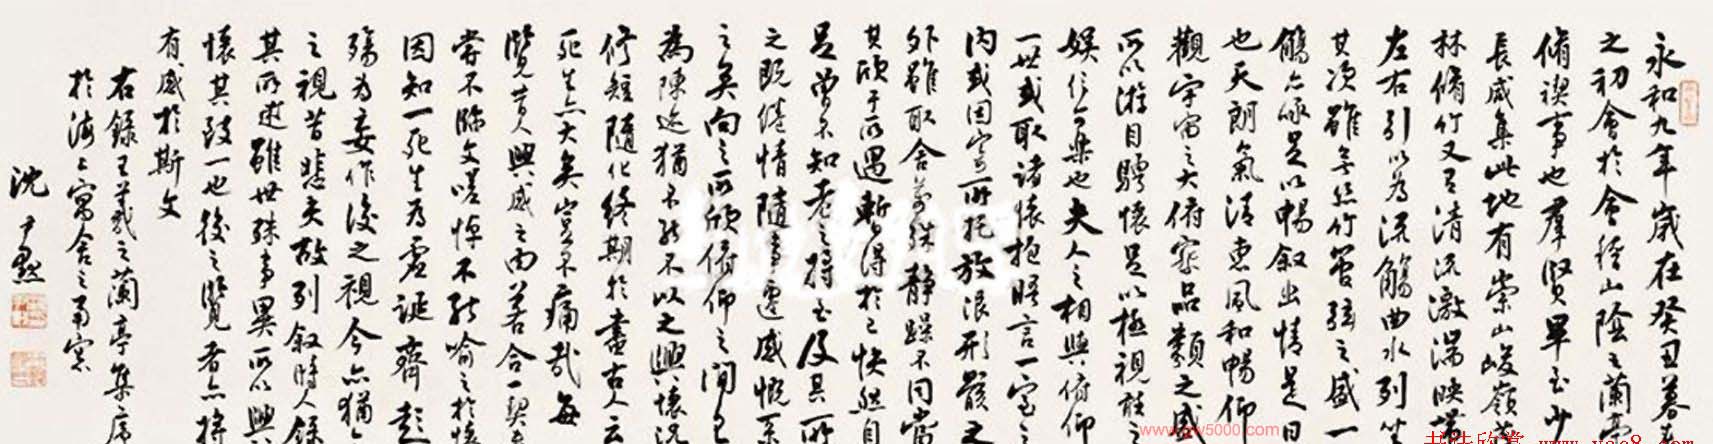 永和九年歲在癸丑暮
之初會於會稽山陰之蘭亭
脩禊事也羣賢畢至少
長咸集此地有崇山峻嶺茂
林脩竹又有清流激湍映帶
左右引以為流觴曲水列坐
其次雖無絲竹管弦之盛一
觴一詠足以暢叙幽情是日
也天朗氣清惠風和暢仰
觀宇宙之大俯察品類之盛
所以遊目騁懷足以極視聽之
娛信可樂也夫人之相與俯仰
一世或取諸懷抱晤言一室之
内或因寄所託放浪形骸之
外雖取舍萬殊靜躁不同當
其欣于所遇暫得於己快然自
足曾不知老之將至及其所
之既倦情隨事遷感慨系
之矣向之所欣俯仰之間已
為陳迹猶不能不以之興懷況
修短隨化終期於盡古人云
死生亦大矣豈不痛哉每
覽昔人興感之由若合一契未
嘗不臨文嗟悼不能喻之於懷
固知一死生為虛誕齊彭
殤為妄作後之視今亦猶今
之視昔悲夫故列叙時人錄
其所述雖世殊事異所以興
懷其致一也後之覽者亦將
有感於斯文
右錄王羲之蘭亭集序
於海上寓舍之南窗
沈尹默